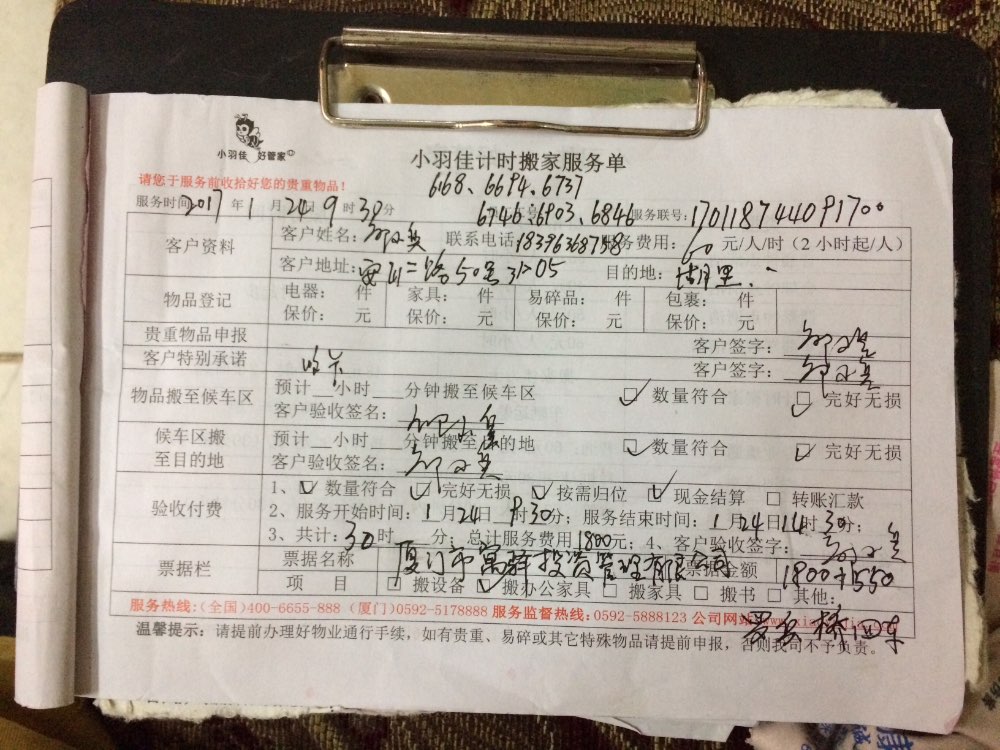 小羽佳 好管家
小羽佳计时搬家服务单
请您于服务前收拾好您的贵重物品！
668、6694、6737
6746、6903、6846
服务时间 2017年1月24日9时30分 服务联号：170118744091700
客户资料 客户姓名： 联系电话：18396368758 服务费用：60元/人/时（2小时起/人）
客户地址：二路50号3105 目的地：湖里
物品登记 电器： 件 家具： 件 易碎品： 件 包裹： 件
保价： 元 保价： 元 保价： 元 保价： 元
贵重物品申报 客户签字：
客户特别承诺 客户签字：
物品搬至候车区 预计__小时___分钟搬至候车区 ☑数量符合 ☑完好无损
客户验收签名：
候车区搬至目的地 预计__小时___分钟搬至目的地 ☑数量符合 ☑完好无损
客户验收签名：
验收付费 1、☑数量符合 ☑完好无损 ☑按需归位 ☑现金结算 □转账汇款
2、服务开始时间：1月24日9时30分；服务结束时间：1月24日14时30分；
3、共计：30时 分；总计服务费用1800元；4、客户验收签字：
票据栏 票据名称 厦门市寓驿投资管理有限公司 票据金额 1800+1550
项 目 □搬设备 ☑搬办公家具 □搬家具 □搬书 □其他：
服务热线：(全国)400-6655-888 (厦门)0592-5178888 服务监督热线：0592-5888123 公司网站
温馨提示：请提前办理好物业通行手续，如有贵重、易碎或其它特殊物品请提前申报，否则我司不予负责。